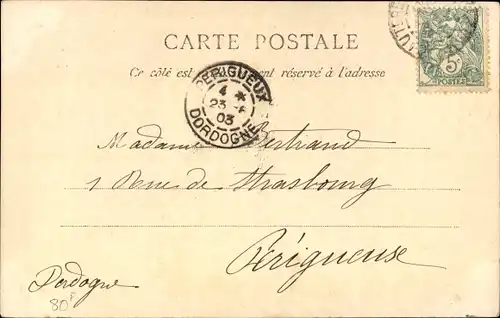 CARTE POSTALE
Ce côté est exclusivement réservé à l'adresse
PÉRIGUEUX
4 *
23
03
DORDOGNE
5c
POSTES
Madame Bertrand
1 Rue de Strasbourg
Périgueuse
Dordogne
80F